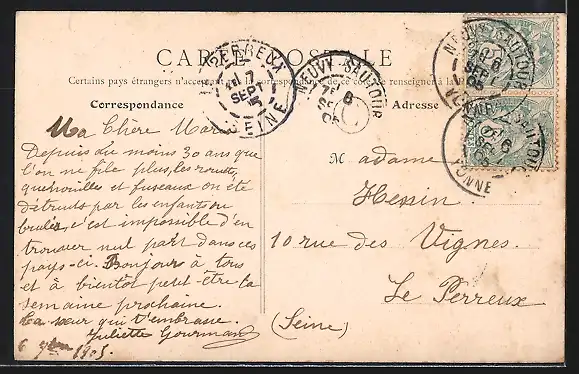 CARTE POSTALE
Certains pays étrangers n'acceptent pas la correspondance de ce côté se renseigner à la
Correspondance
Adresse
LE PERREUX
7
SEPT
05
SEINE
NEUVY-SAUTOUR
6
SEPT
05
NEUVY-SAUTOUR
6
SEPT
05
YONNE
NEUVY-SAUTOUR
6
SEPT
05
YONNE
Ma Chère Marie
Depuis du moins 30 ans que
l'on ne file plus, les rouets,
quenouilles et fuseaux on été
détruits par les enfants ou
brulés, c'est impossible d'en
trouver nul part dans ces
pays-ci. Bonjours à tous
et à bientôt peut-être la
semaine prochaine.
Ta sœur qui t'embrasse.
Juliette Gourmand
6 7bre 1905.
Madame
Hessin
10 rue des Vignes.
Le Perreux
(Seine)